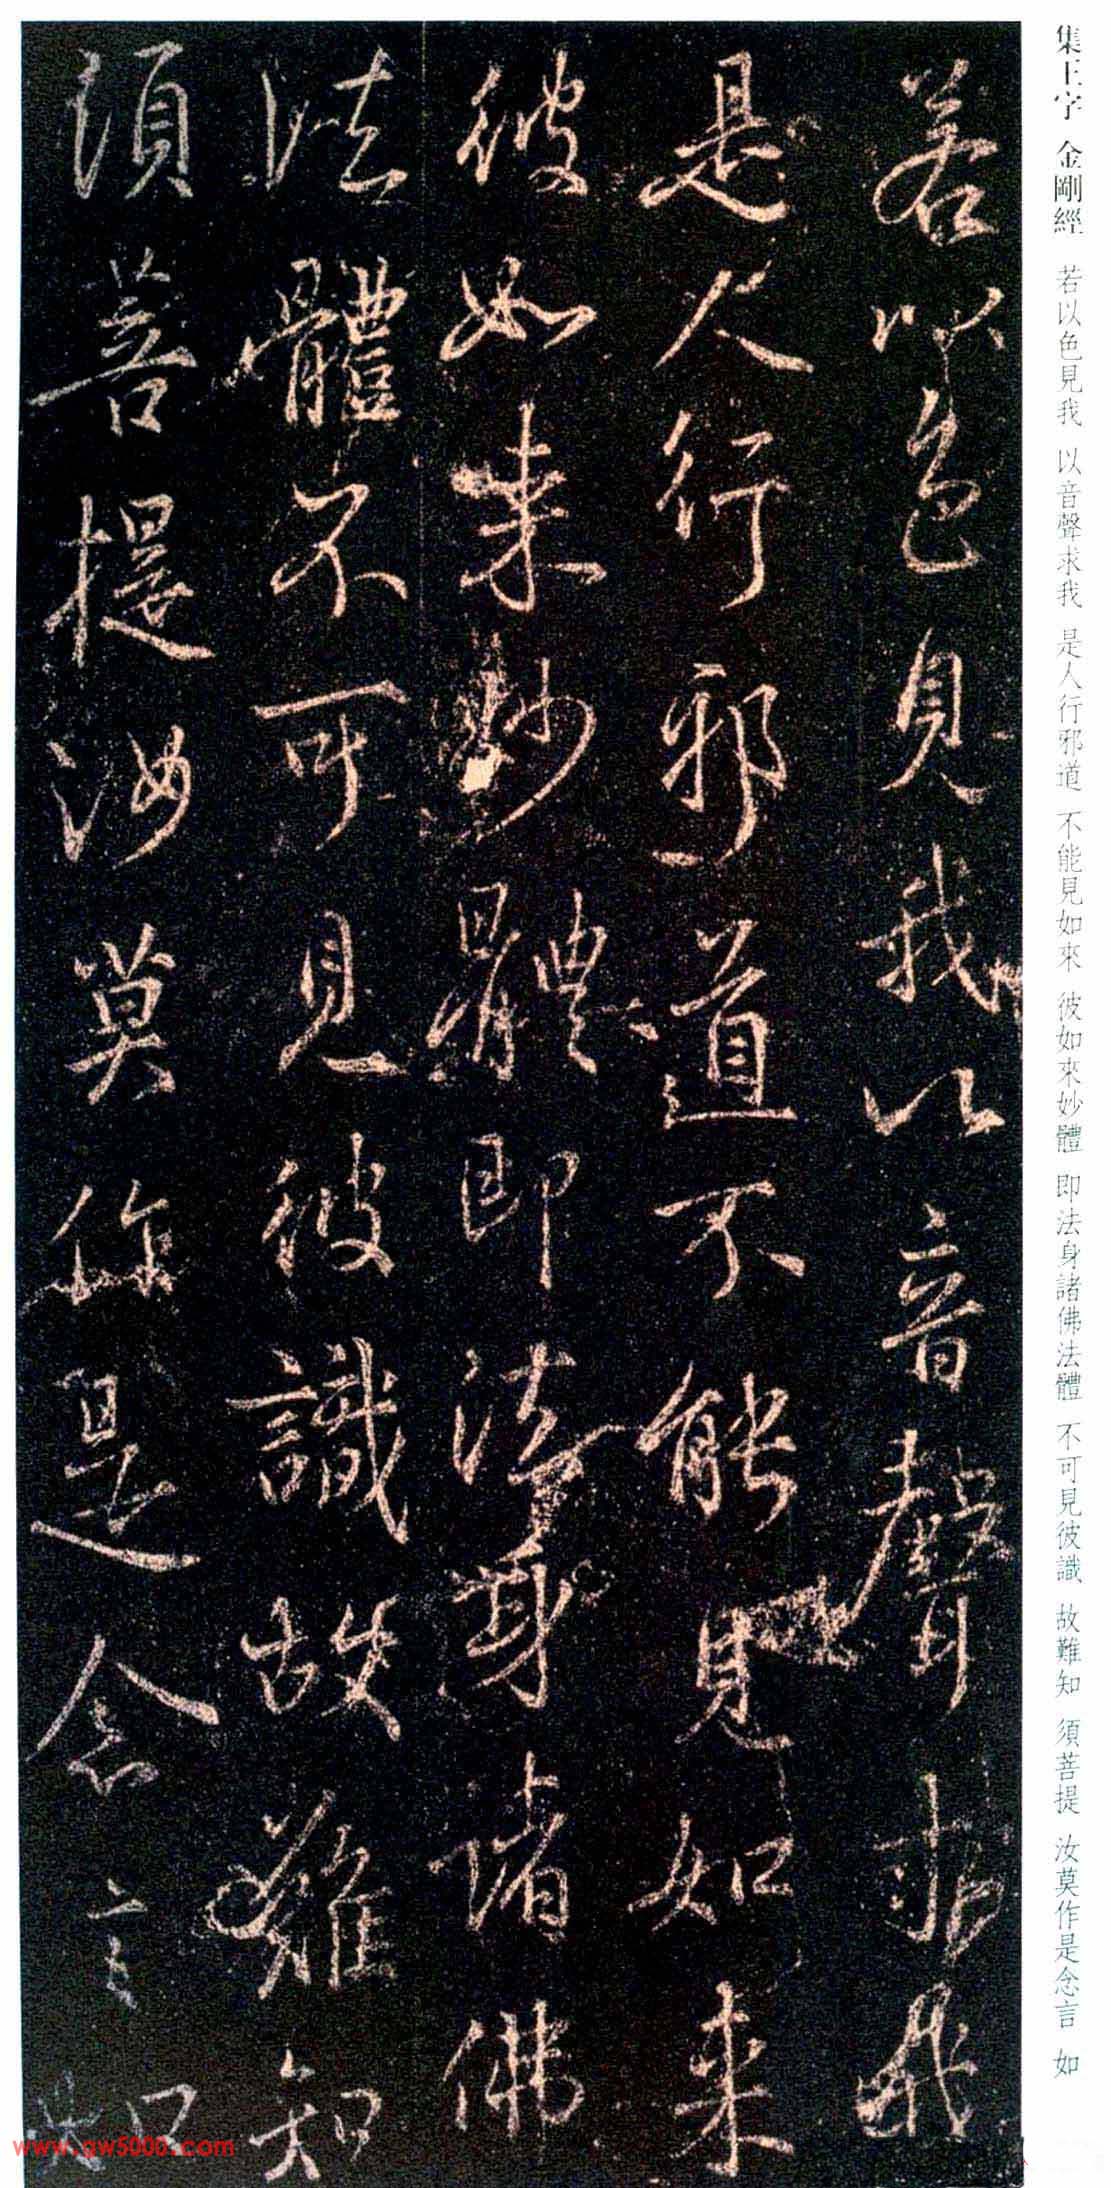 集王字 金剛經 若以色見我 以音聲求我 是人行邪道 不能見如來 彼如來妙體 即法身諸佛法體 不可見彼識 故難知 須菩提 汝莫作是念言 如
若以色見我以音聲求我
是人行邪道不能見如来
彼如来妙體即法身諸佛
法體不可見彼識故難知
須菩提汝莫作是念言如
www.gw5000.com